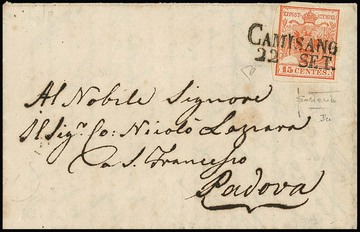 KKPOST-STEMPEL
CAMISANO
22 SET.
15 CENTES.
Al Nobile Signore
Il Sig.r Co: Nicolò Lazzara
a S. Francesco
Padova